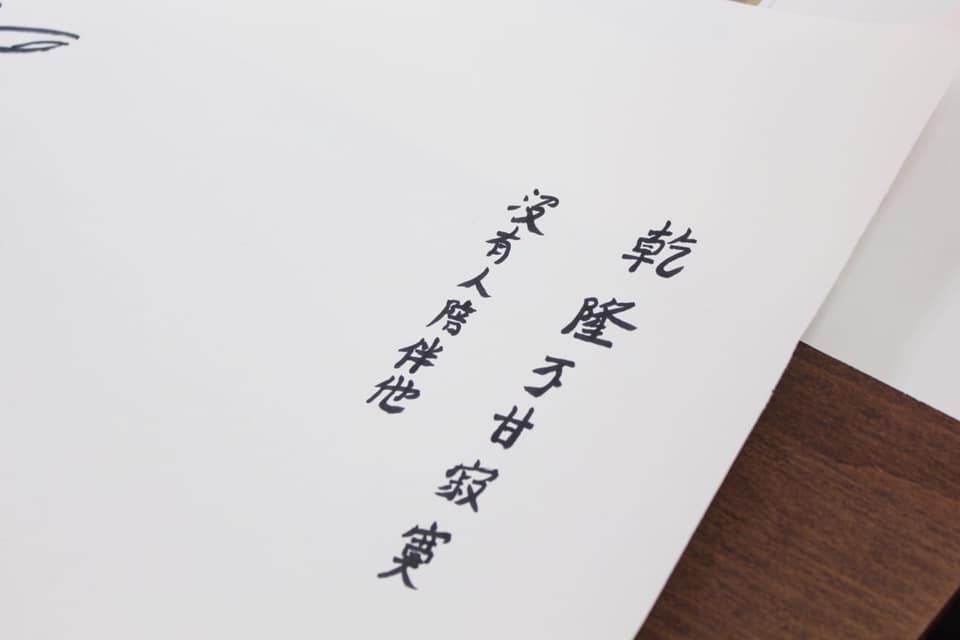 乾隆不甘寂寞
沒有人陪伴他